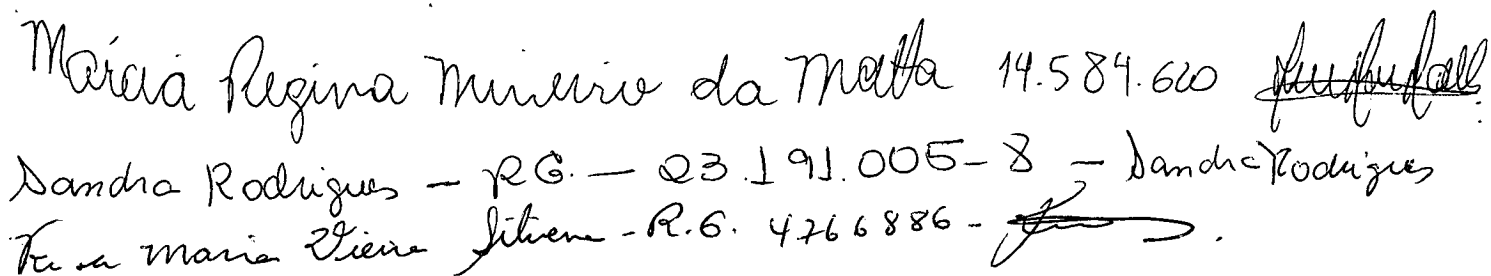 Márcia Regina Mineiro da Matta 14.584.620
Sandra Rodrigues - RG. - 23.191.005-8 - Sandra Rodrigues
Maria Vieira - R.G. 4766886 -